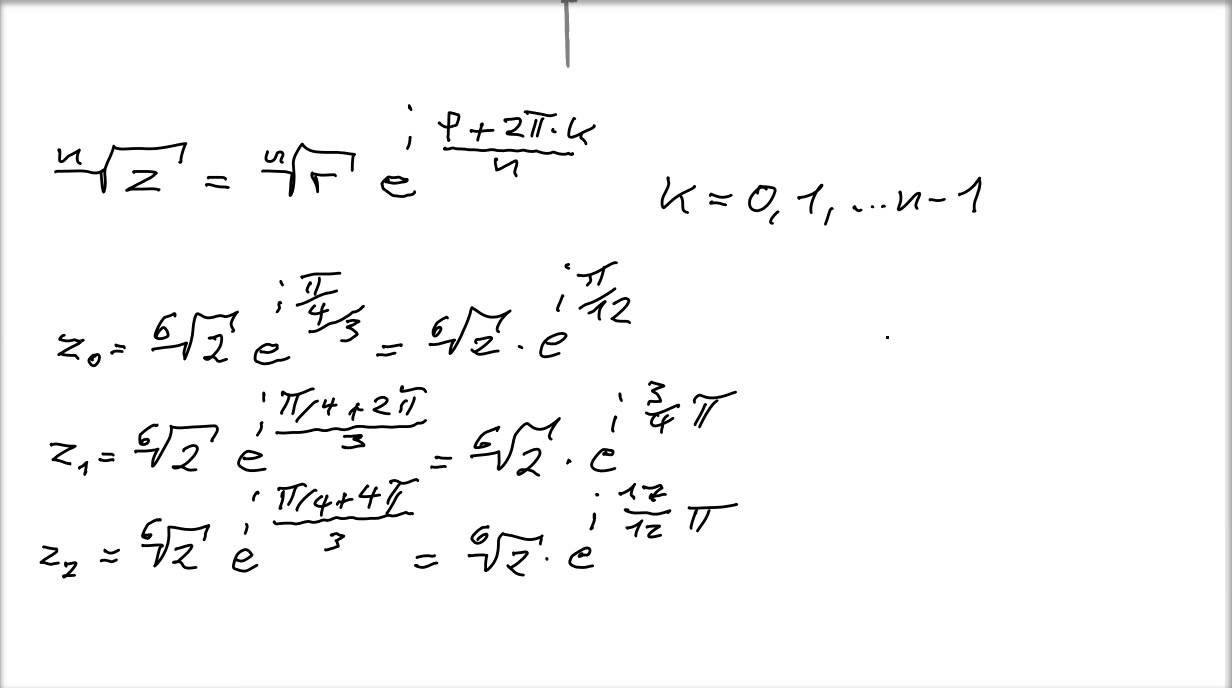 ⁿ√z = ⁿ√r e^(i (φ + 2π·k)/n) k = 0, 1, ... n-1
z₀ = ⁶√2 e^(i (π/4)/3) = ⁶√2 · e^(i π/12)
z₁ = ⁶√2 e^(i (π/4 + 2π)/3) = ⁶√2 · e^(i 3/4 π)
z₂ = ⁶√2 e^(i (π/4 + 4π)/3) = ⁶√2 · e^(i 17/12 π)